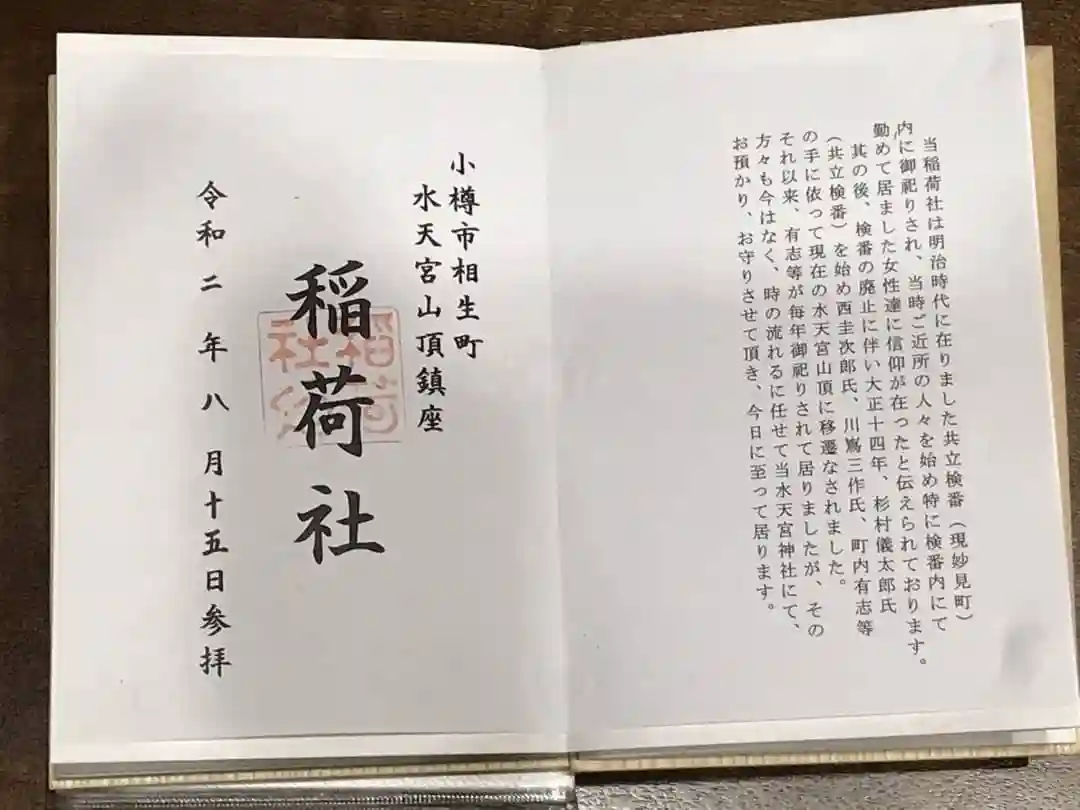 当稲荷社は明治時代に在りました共立検番(現妙見町)
内に御祀りされ、当時ご近所の人々を始め特に検番内にて
勤めて居ました女性達に信仰が在ったと伝えられております。
其の後、検番の廃止に伴い大正十四年、杉村儀太郎氏
(共立検番)を始め西圭次郎氏、川嶌三作氏、町内有志等
の手に依って現在の水天宮山頂に移遷なされました。
それ以来、有志等が毎年御祀りされて居りましたが、その
方々も今はなく、時の流れるに任せて当水天宮神社にて、
お預かり、お守りさせて頂き、今日に至って居ります。
小樽市相生町
水天宮山頂鎮座
稲荷社
令和二年八月十五日参拝